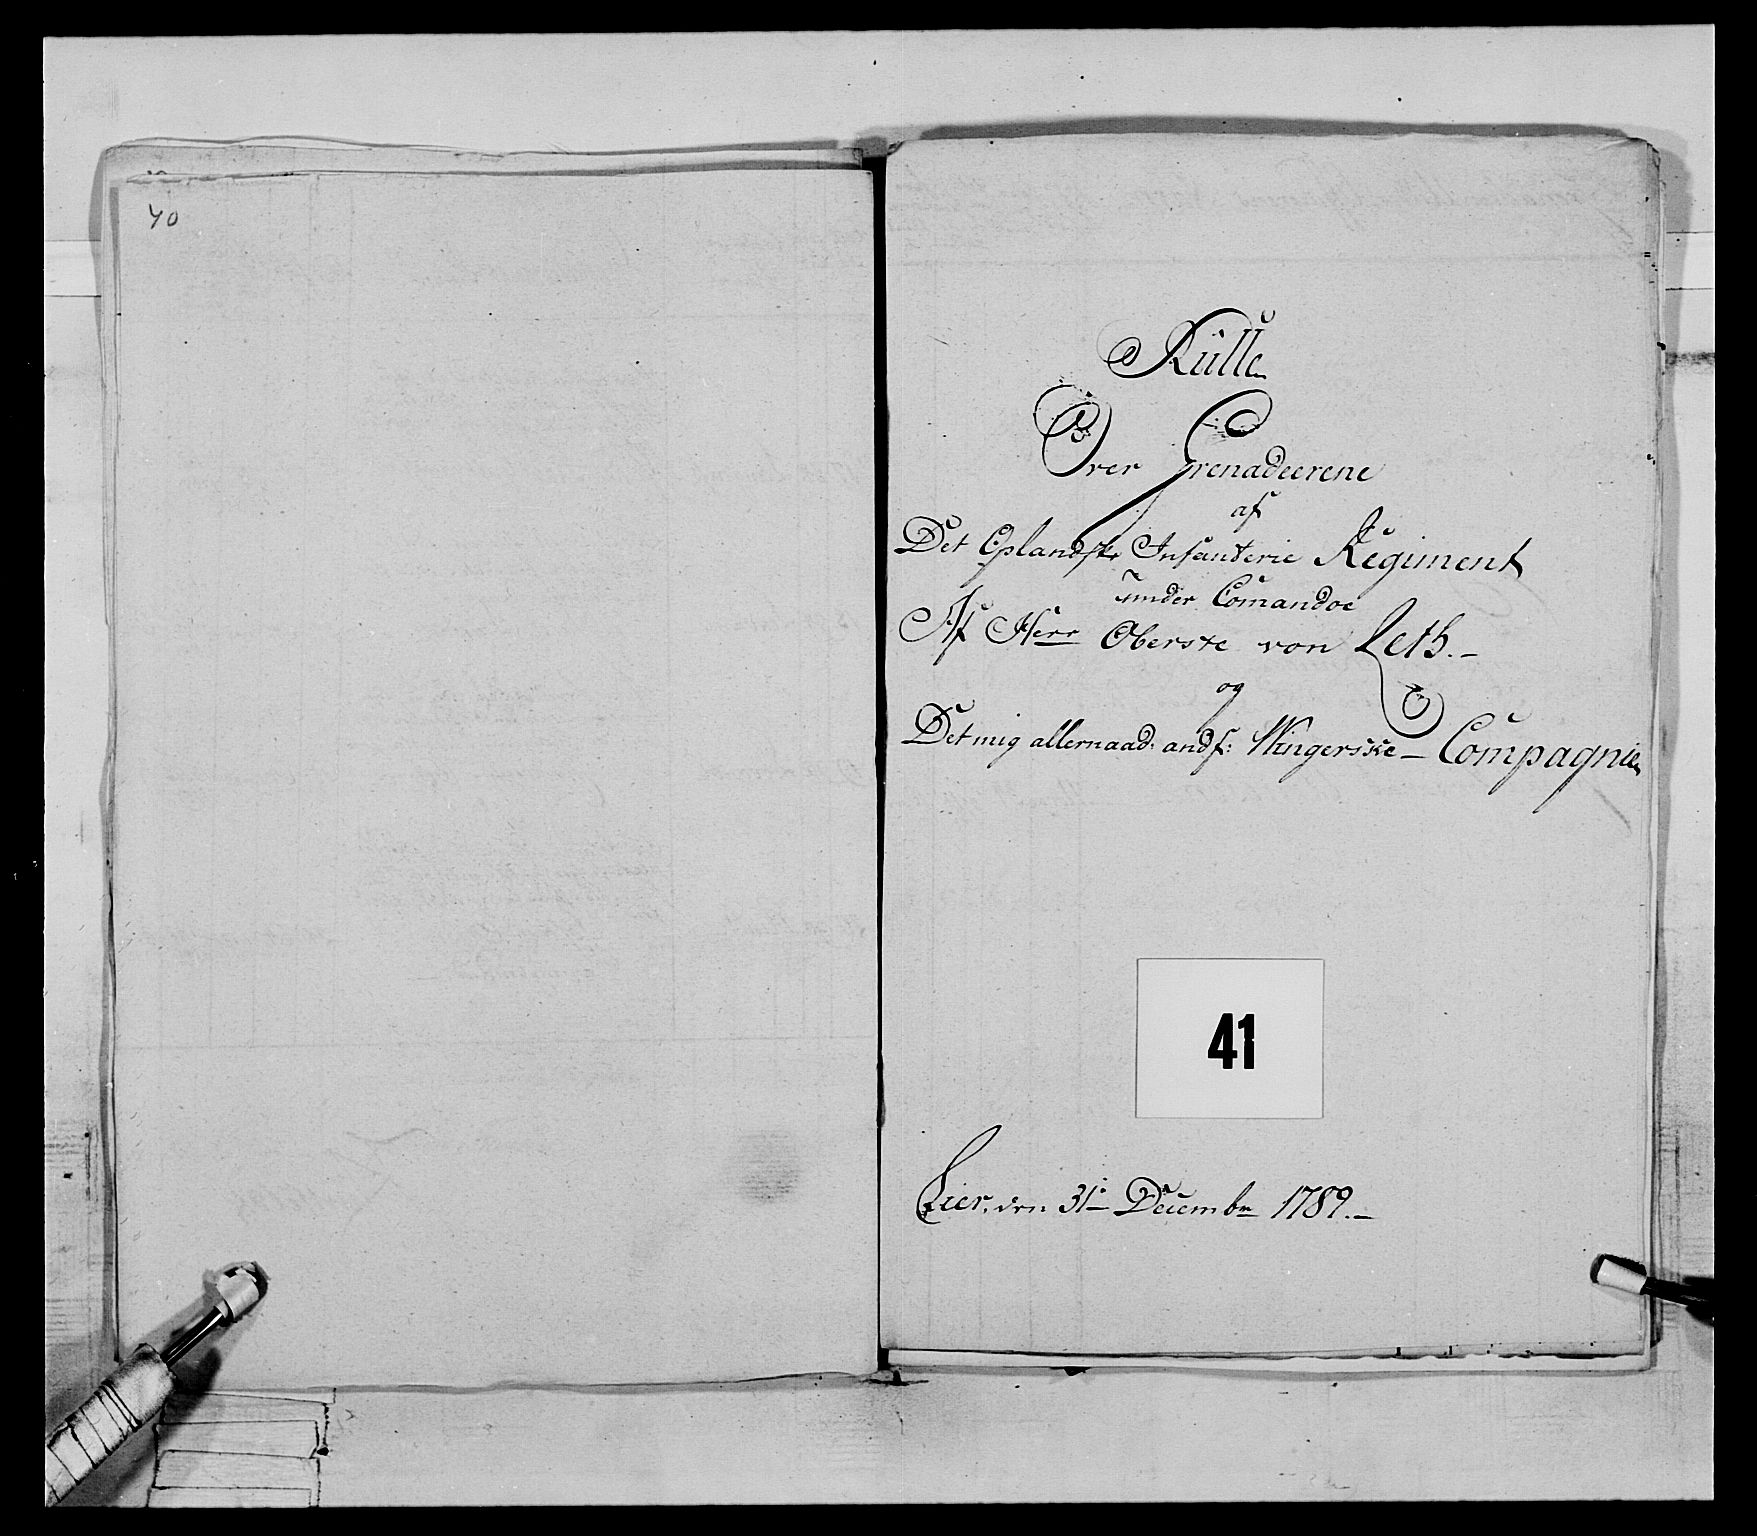 40
Rulle
Over Grenadeerene
af
Det Oplandske Infanterie Regiment
under Comandoe
Af Herr Oberste von Leth.-
og
Det mig allernaad: andf: Wingerske - Compagnie
41
Lier, den 31te Decembr 1789.-